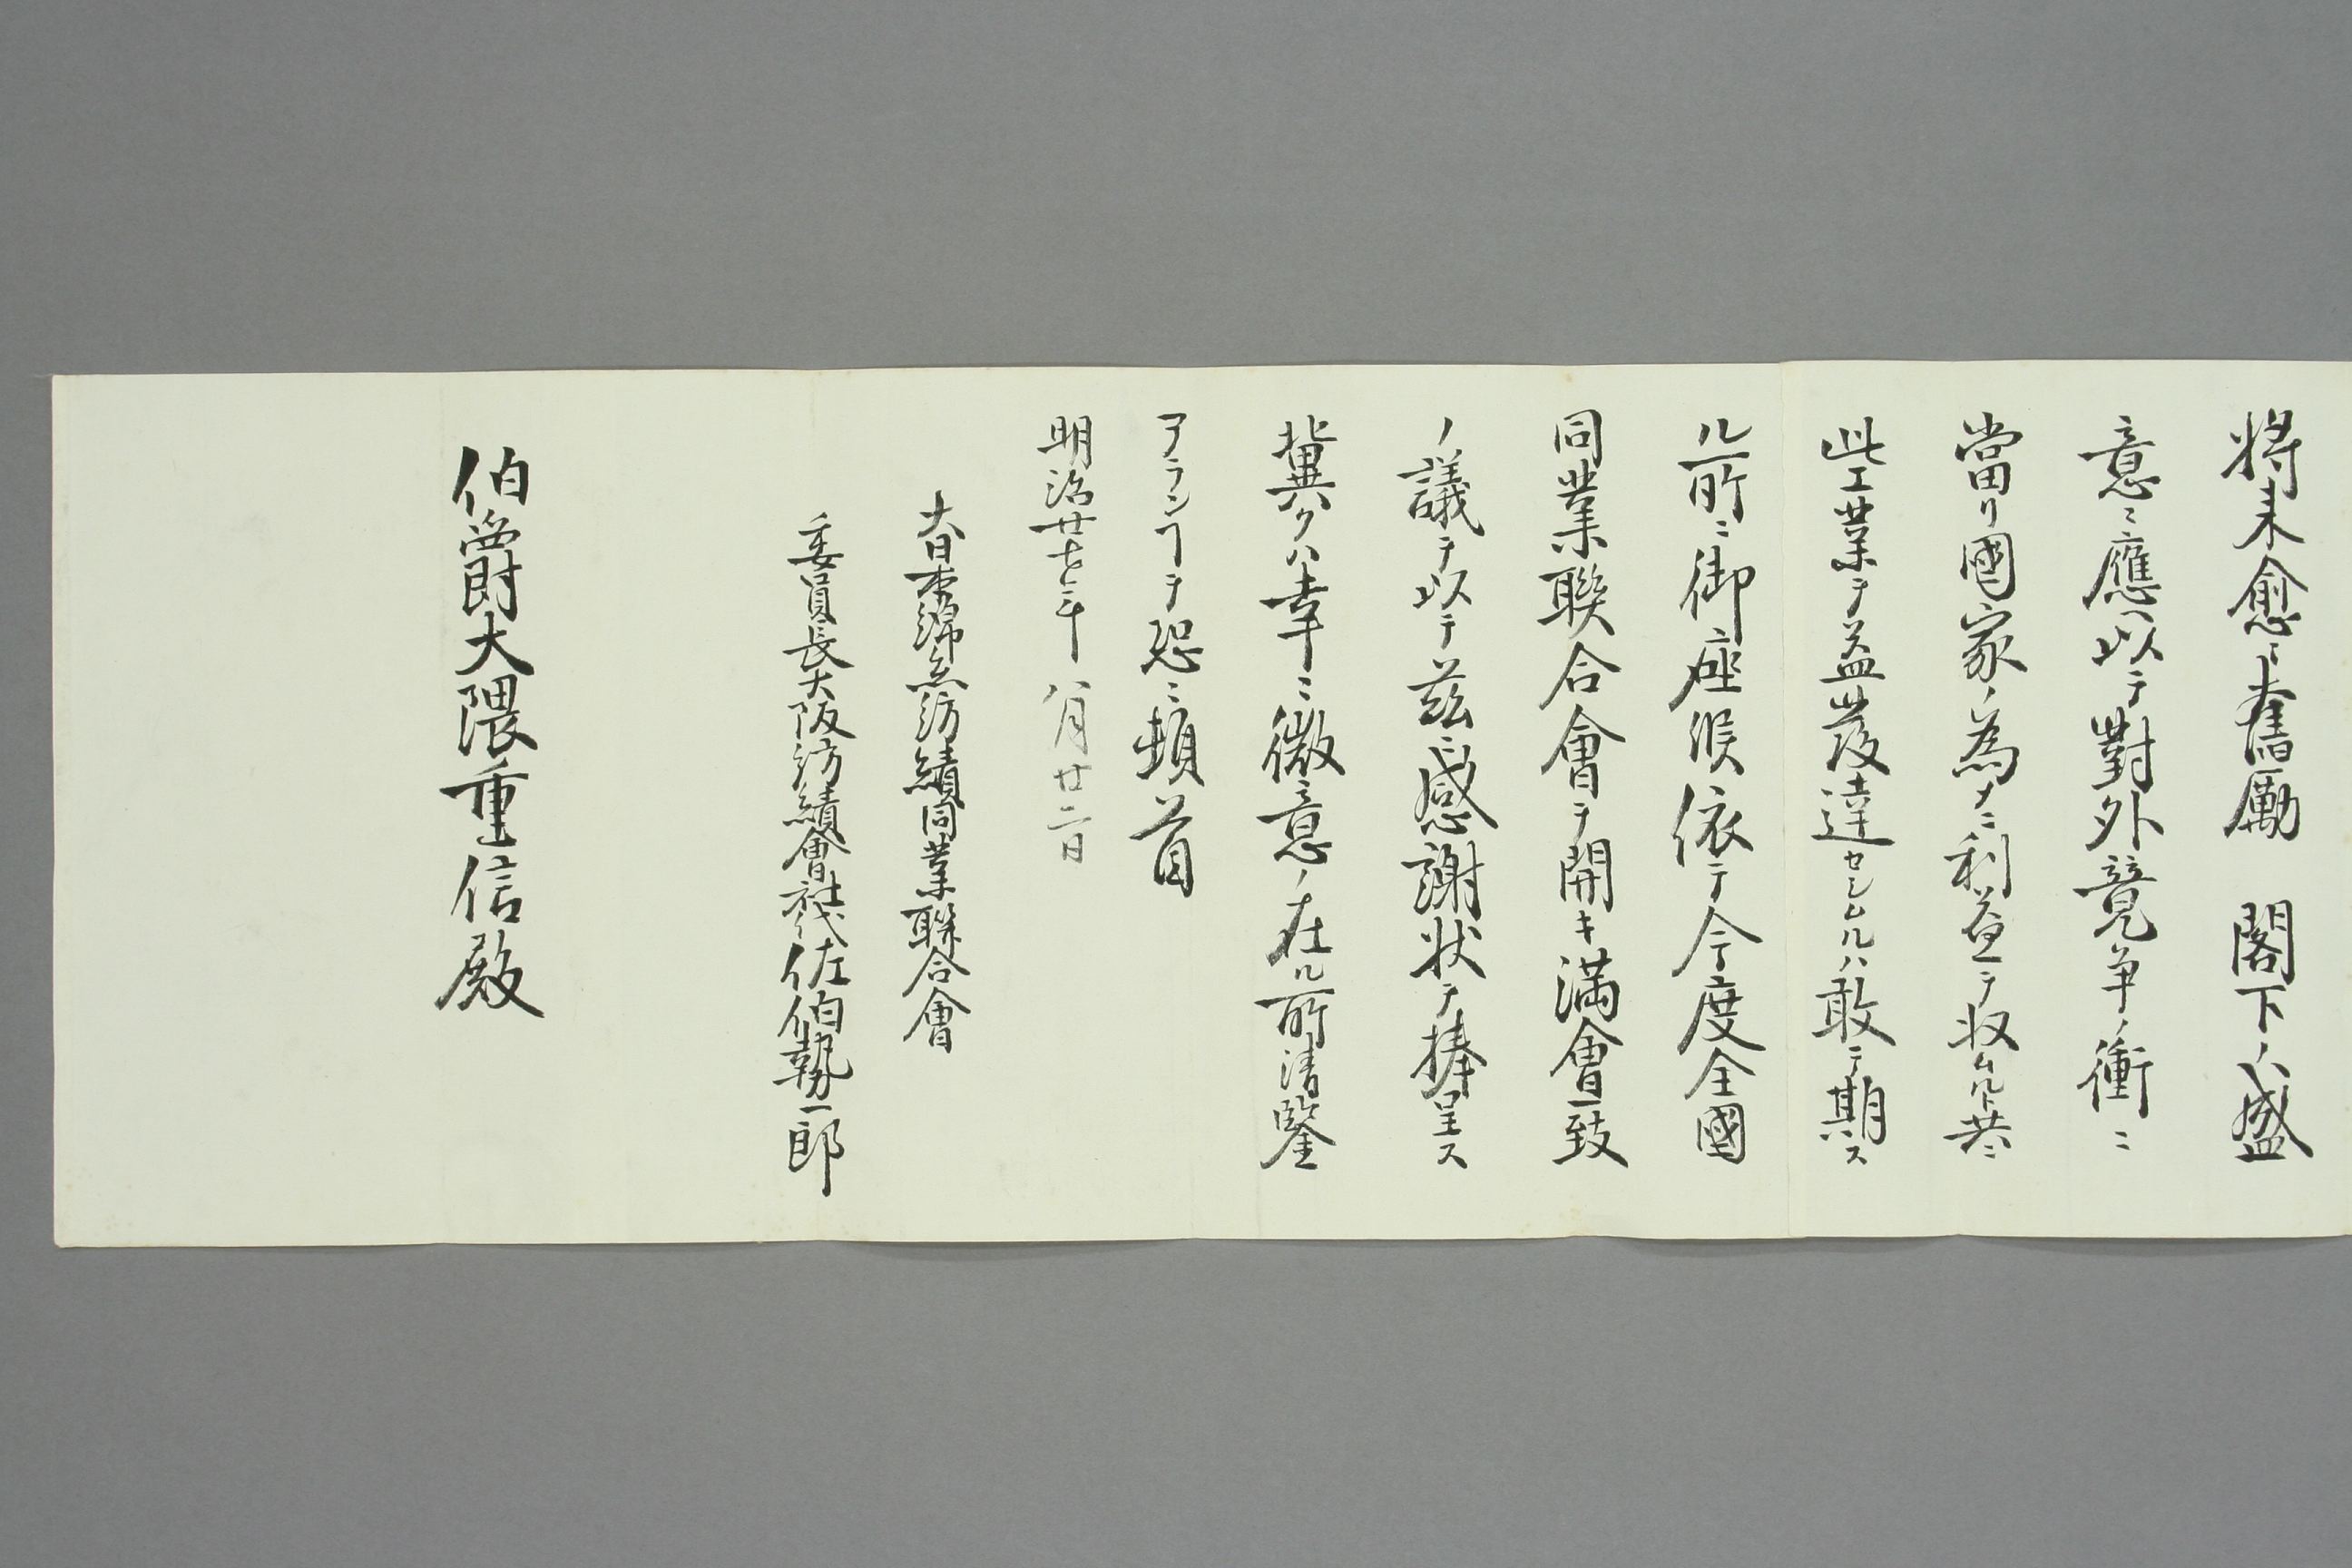 将来愈々奮励　閣下ノ盛
意ニ應ヘ以テ對外競争ノ衝ニ
當リ國家ノ為メニ利益ヲ収ムルト共ニ
此工業ヲ益發達セシムルハ敢テ期ス
ル所ニ御座候依テ今度全國
同業聯合會ヲ開キ満會一致
ノ議ヲ以テ茲ニ感謝状ヲ捧呈ス
冀クハ幸ニ微意ノ在ル所清鑒
アランヿヲ恐々頓首
明治廿七年八月廿二日
大日本綿糸紡績同業聯合會
委員長大阪紡績會社代佐伯勢一郎
伯爵大隈重信殿